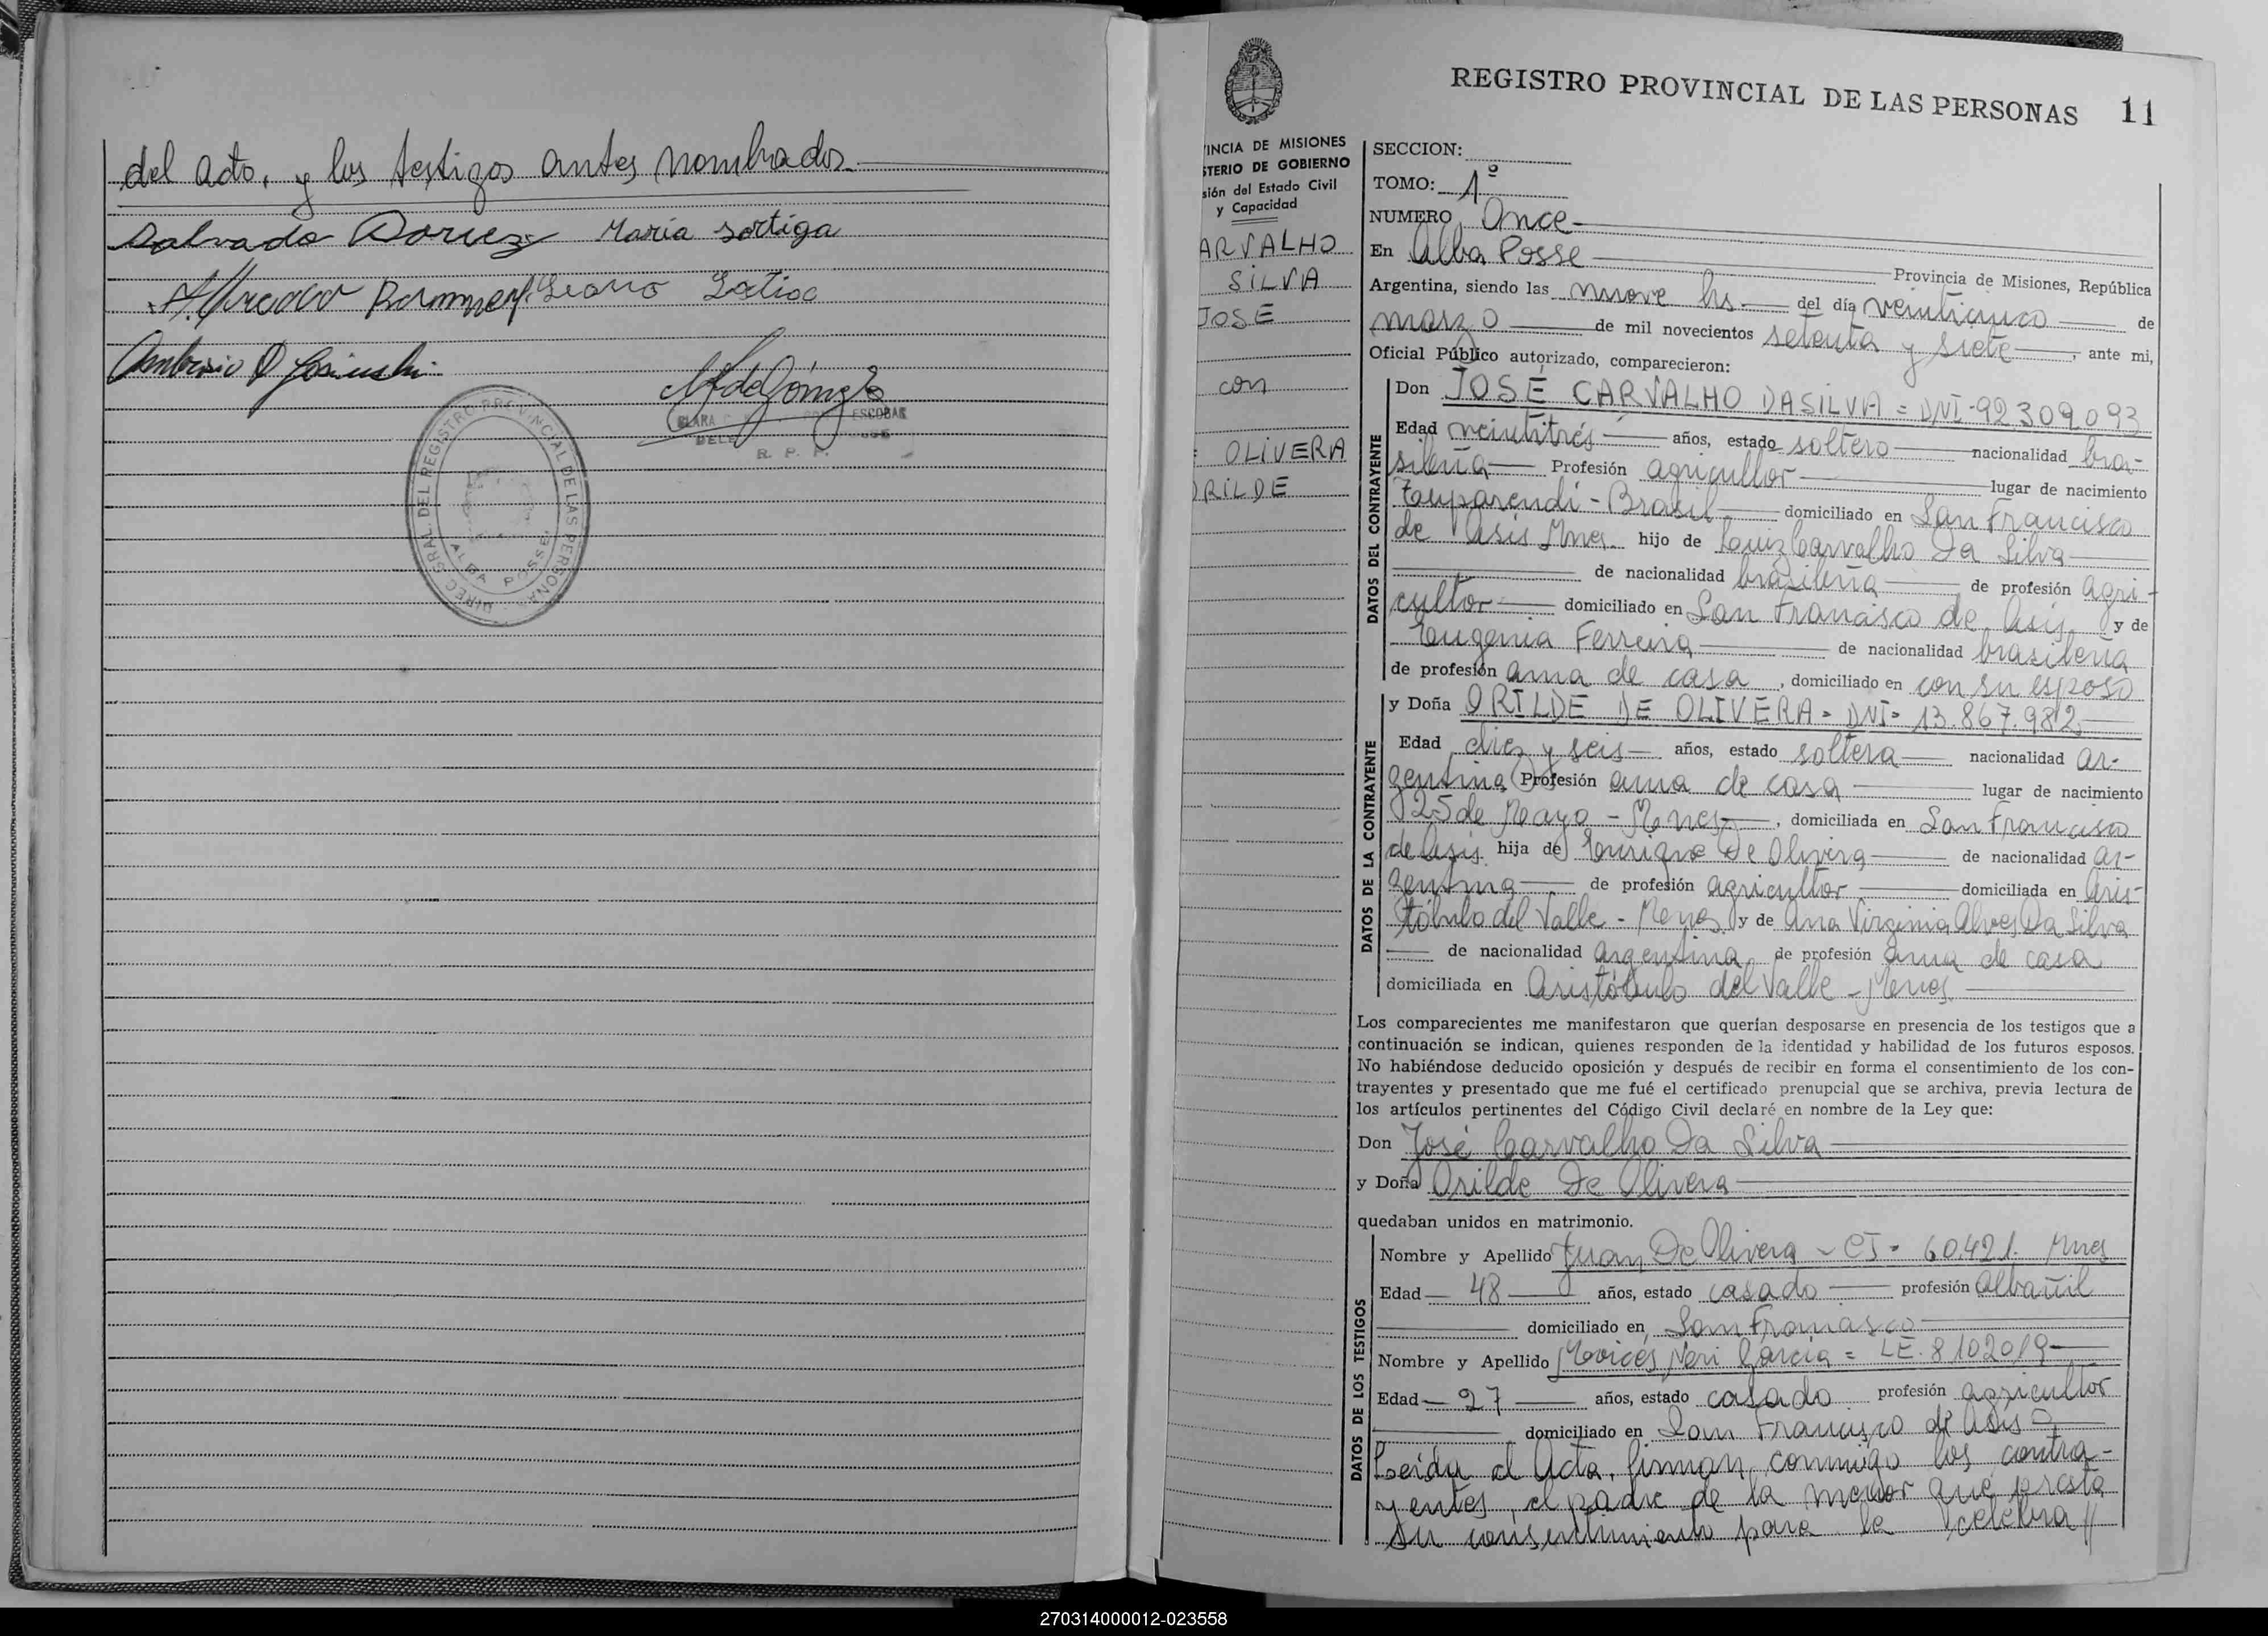 del acto, y los testigos antes nombrados.
Maria Sortiga
DIREC. GRAL. DEL REGISTRO PROVINCIAL DE LAS PERSONAS
ALBA POSSE
CLARA ESCOBAR
R. P. P.
REGISTRO PROVINCIAL DE LAS PERSONAS 11
INCIA DE MISIONES
STERIO DE GOBIERNO
sión del Estado Civil
y Capacidad
ARVALHO
SILVA
JOSE
con
OLIVERA
ORILDE
SECCION:
TOMO: 1º
NUMERO Once
En Alba Posse Provincia de Misiones, República
Argentina, siendo las nueve hs. del día veinticinco de
marzo de mil novecientos setenta y siete, ante mi,
Oficial Público autorizado, comparecieron:
DATOS DEL CONTRAYENTE
Don JOSÉ CARVALHO DA SILVA = DNI-92309093
Edad veintitrés años, estado soltero nacionalidad bra-
sileña Profesión agricultor lugar de nacimiento
Tuparendi - Brasil domiciliado en San Francisco
de Asis Mnes. hijo de Luiz Carvalho Da Silva
de nacionalidad brasileña de profesión agri-
cultor domiciliado en San Francisco de Asis y de
Eugenia Ferreira de nacionalidad brasileña
de profesión ama de casa, domiciliado en con su esposo
DATOS DE LA CONTRAYENTE
y Doña ORILDE DE OLIVERA = DNI= 13.867.982
Edad diez y seis años, estado soltera nacionalidad ar-
gentina Profesión ama de casa lugar de nacimiento
25 de Mayo - Mnes, domiciliada en San Francisco
de Asis hija de Enrique De Olivera de nacionalidad ar-
gentina de profesión agricultor domiciliada en Aris-
tóbulo del Valle - Mnes y de Ana Virginia Alves Da Silva
de nacionalidad argentina de profesión ama de casa
domiciliada en Aristóbulo del Valle - Mnes
Los comparecientes me manifestaron que querían desposarse en presencia de los testigos que a
continuación se indican, quienes responden de la identidad y habilidad de los futuros esposos.
No habiéndose deducido oposición y después de recibir en forma el consentimiento de los con-
trayentes y presentado que me fué el certificado prenupcial que se archiva, previa lectura de
los artículos pertinentes del Código Civil declaré en nombre de la Ley que:
Don José Carvalho Da Silva
y Doña Orilde De Olivera
quedaban unidos en matrimonio.
DATOS DE LOS TESTIGOS
Nombre y Apellido Juan De Olivera - CI= 60.421. Mnes
Edad 48 años, estado casado profesión albañil
domiciliado en San Francisco
Nombre y Apellido Neri Garcia = LE. 8102019
Edad 27 años, estado casado profesión agricultor
domiciliado en San Francisco de Asis
Leida el Acta, firman conmigo los contra-
yentes, el padre de la menor que presta
su consentimiento para la celebra//
270314000012-023558